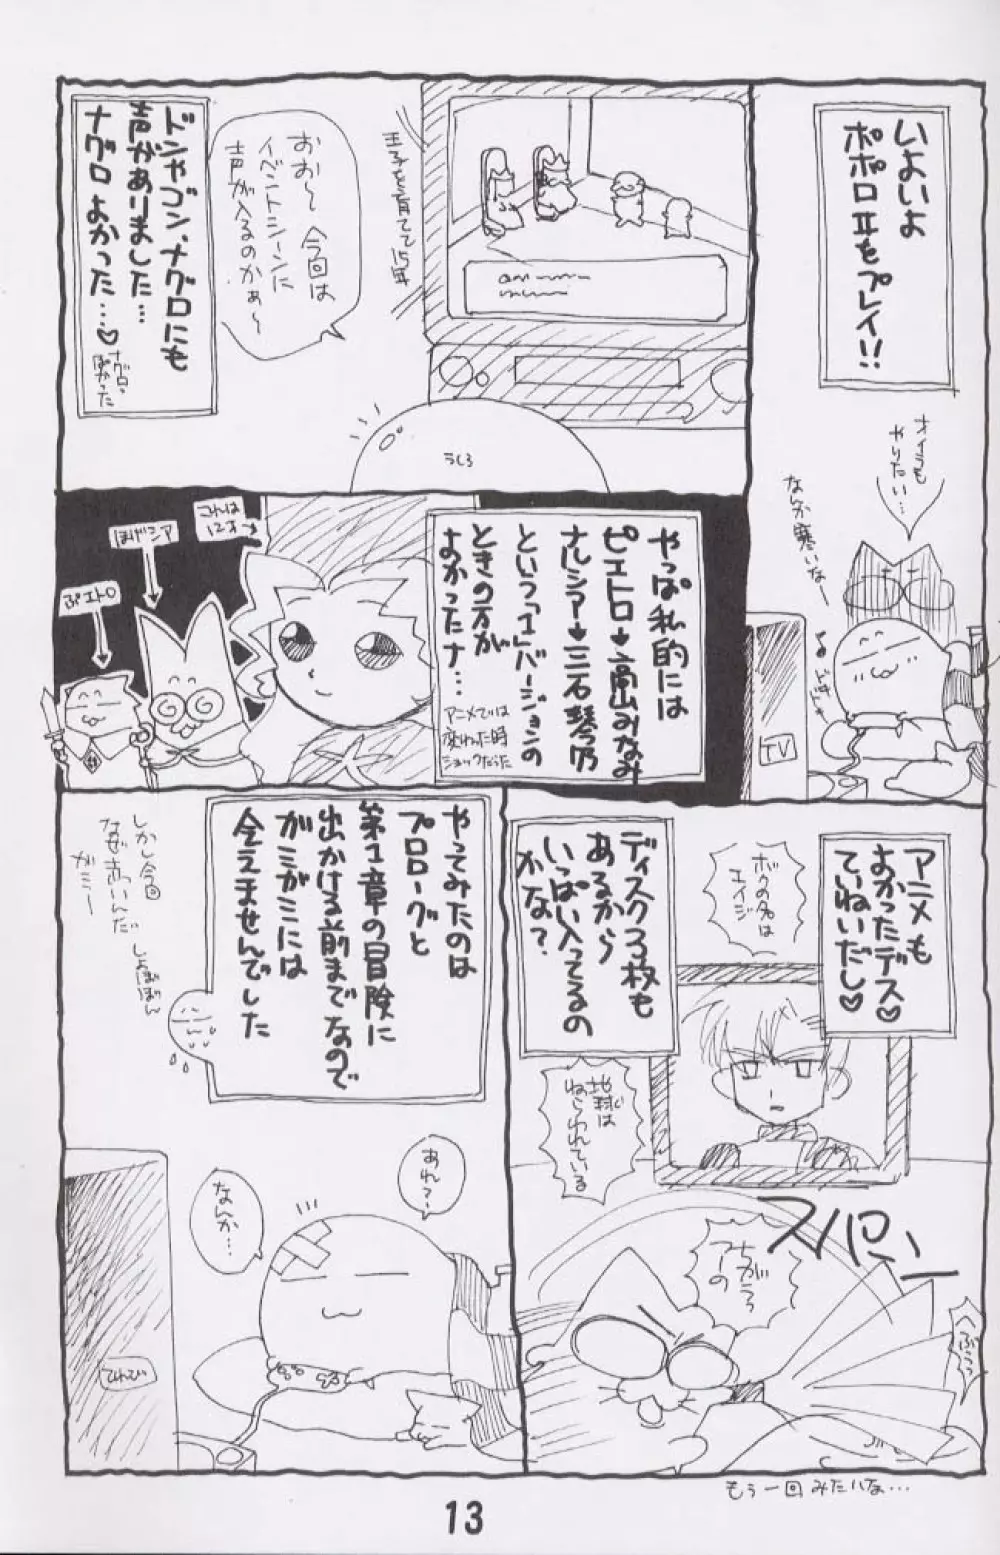 いよいよ
ポポロⅡをプレイ!!
オイラも
やりたい…
なんか寒いなー
TV
王子を育てて15年
おお〜 今回は
イベントシーンに
声が入るのかぁ〜
ドンやゴン、ナグロにも
声がありました…
ナグロよかった…♡
ナグロ
よかった
うしろ
やっぱ私的には
ピエトロ♥高山みなみ
ナルシア♥三石琴乃
という「1」バージョンの
ときの方が
よかったナ…
アニメでは
変わった時
ショックだった
これは
12才
ほげシア
ぷエトロ
アニメも
よかったデス♡
ていねいだし♡
ボクの名は
エイジ
ディスク3枚も
あるから
いっぱい入ってるの
かな?
地球は
ねらわれている
スパーン
ちがうっ
アーの
もう一回みたいな…
やってみたのは
プロローグと
第1章の冒険に
出かける前までなので
ガミガミには
会えませんでした
しかし今回
なぜ赤いんだ
ガミー
しょぼぼん
あれ?
なんか…
てれび
13